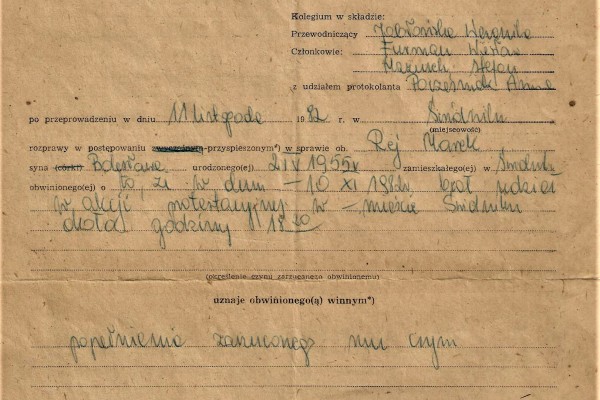 Kolegium w składzie:
Przewodniczący Jabłońska Weronika
Członkowie: Furman Wiesław
Mazurek Stefan
z udziałem protokolanta Poczesniak Anna
po przeprowadzeniu w dniu 11 Listopada 1982 r. w Świdniku
(miejscowość)
rozprawy w postępowaniu -przyspieszonym*) w sprawie ob. Rej Marek
syna (córki) Bolesława urodzonego(ej) 2 IV 1955r zamieszkałego(ej) w Świdnik
obwinionego(ej) o to, że w dniu – 10 XI 1982r brał udział
w akcji protestacyjnej w – mieście Świdniku
około godziny 18 20
(określenie czynu zarzucanego obwinionemu)
uznaje obwinionego(ą) winnym*)
popełnienia zarzuconego mu czynu